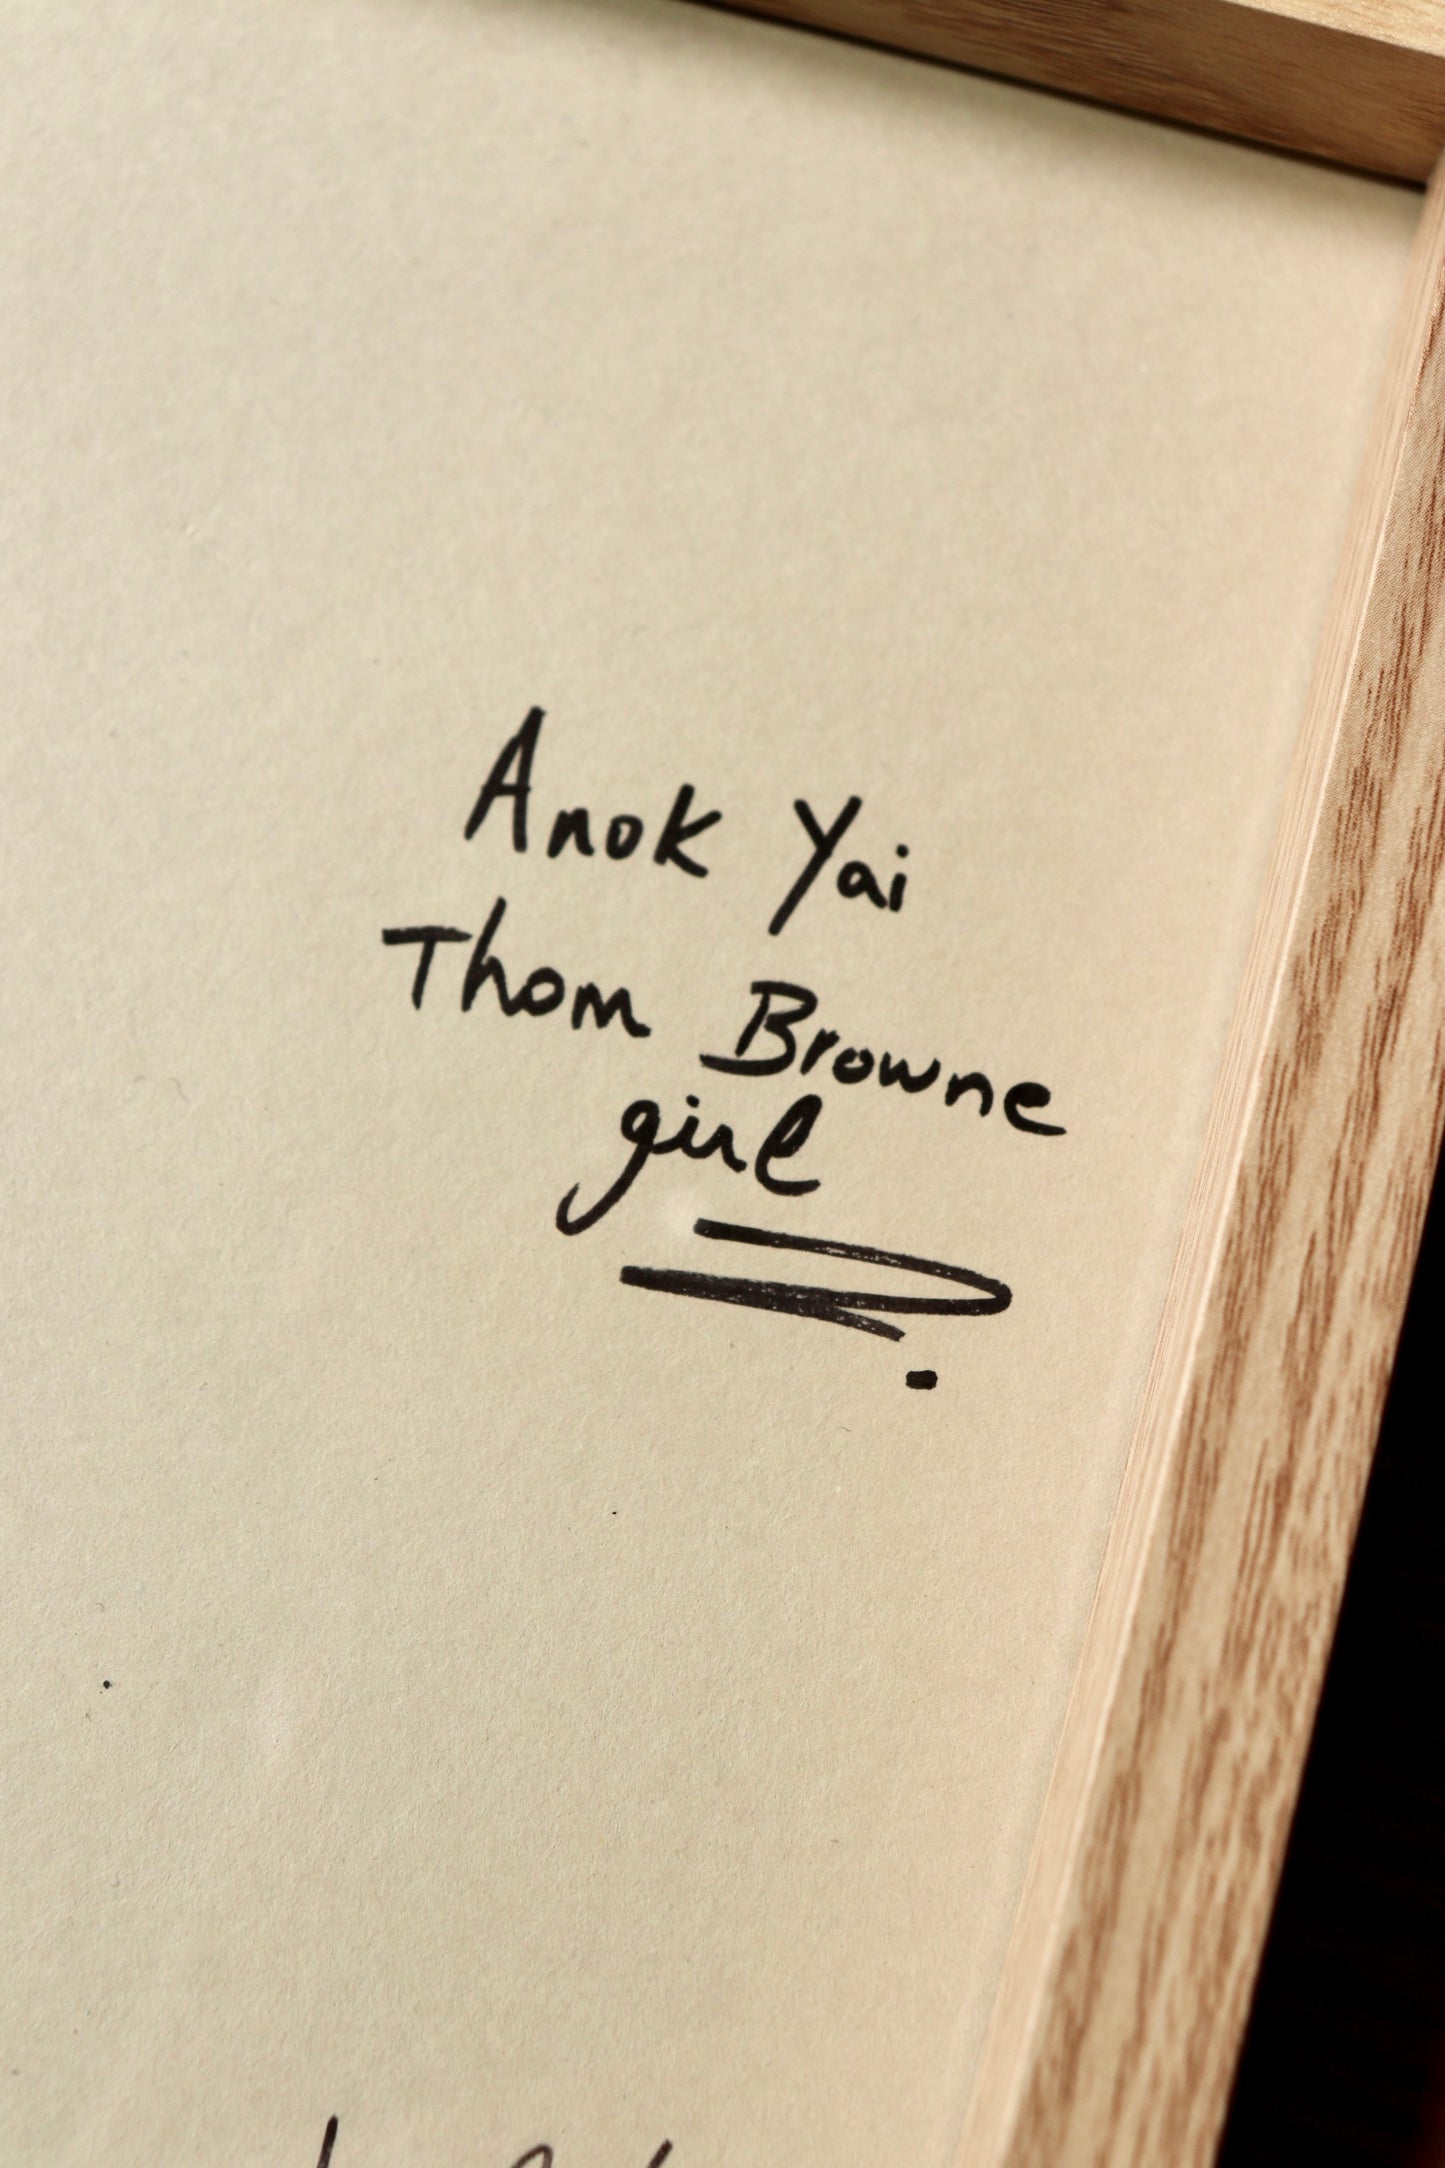 Anok Yai
Thom Browne
girl